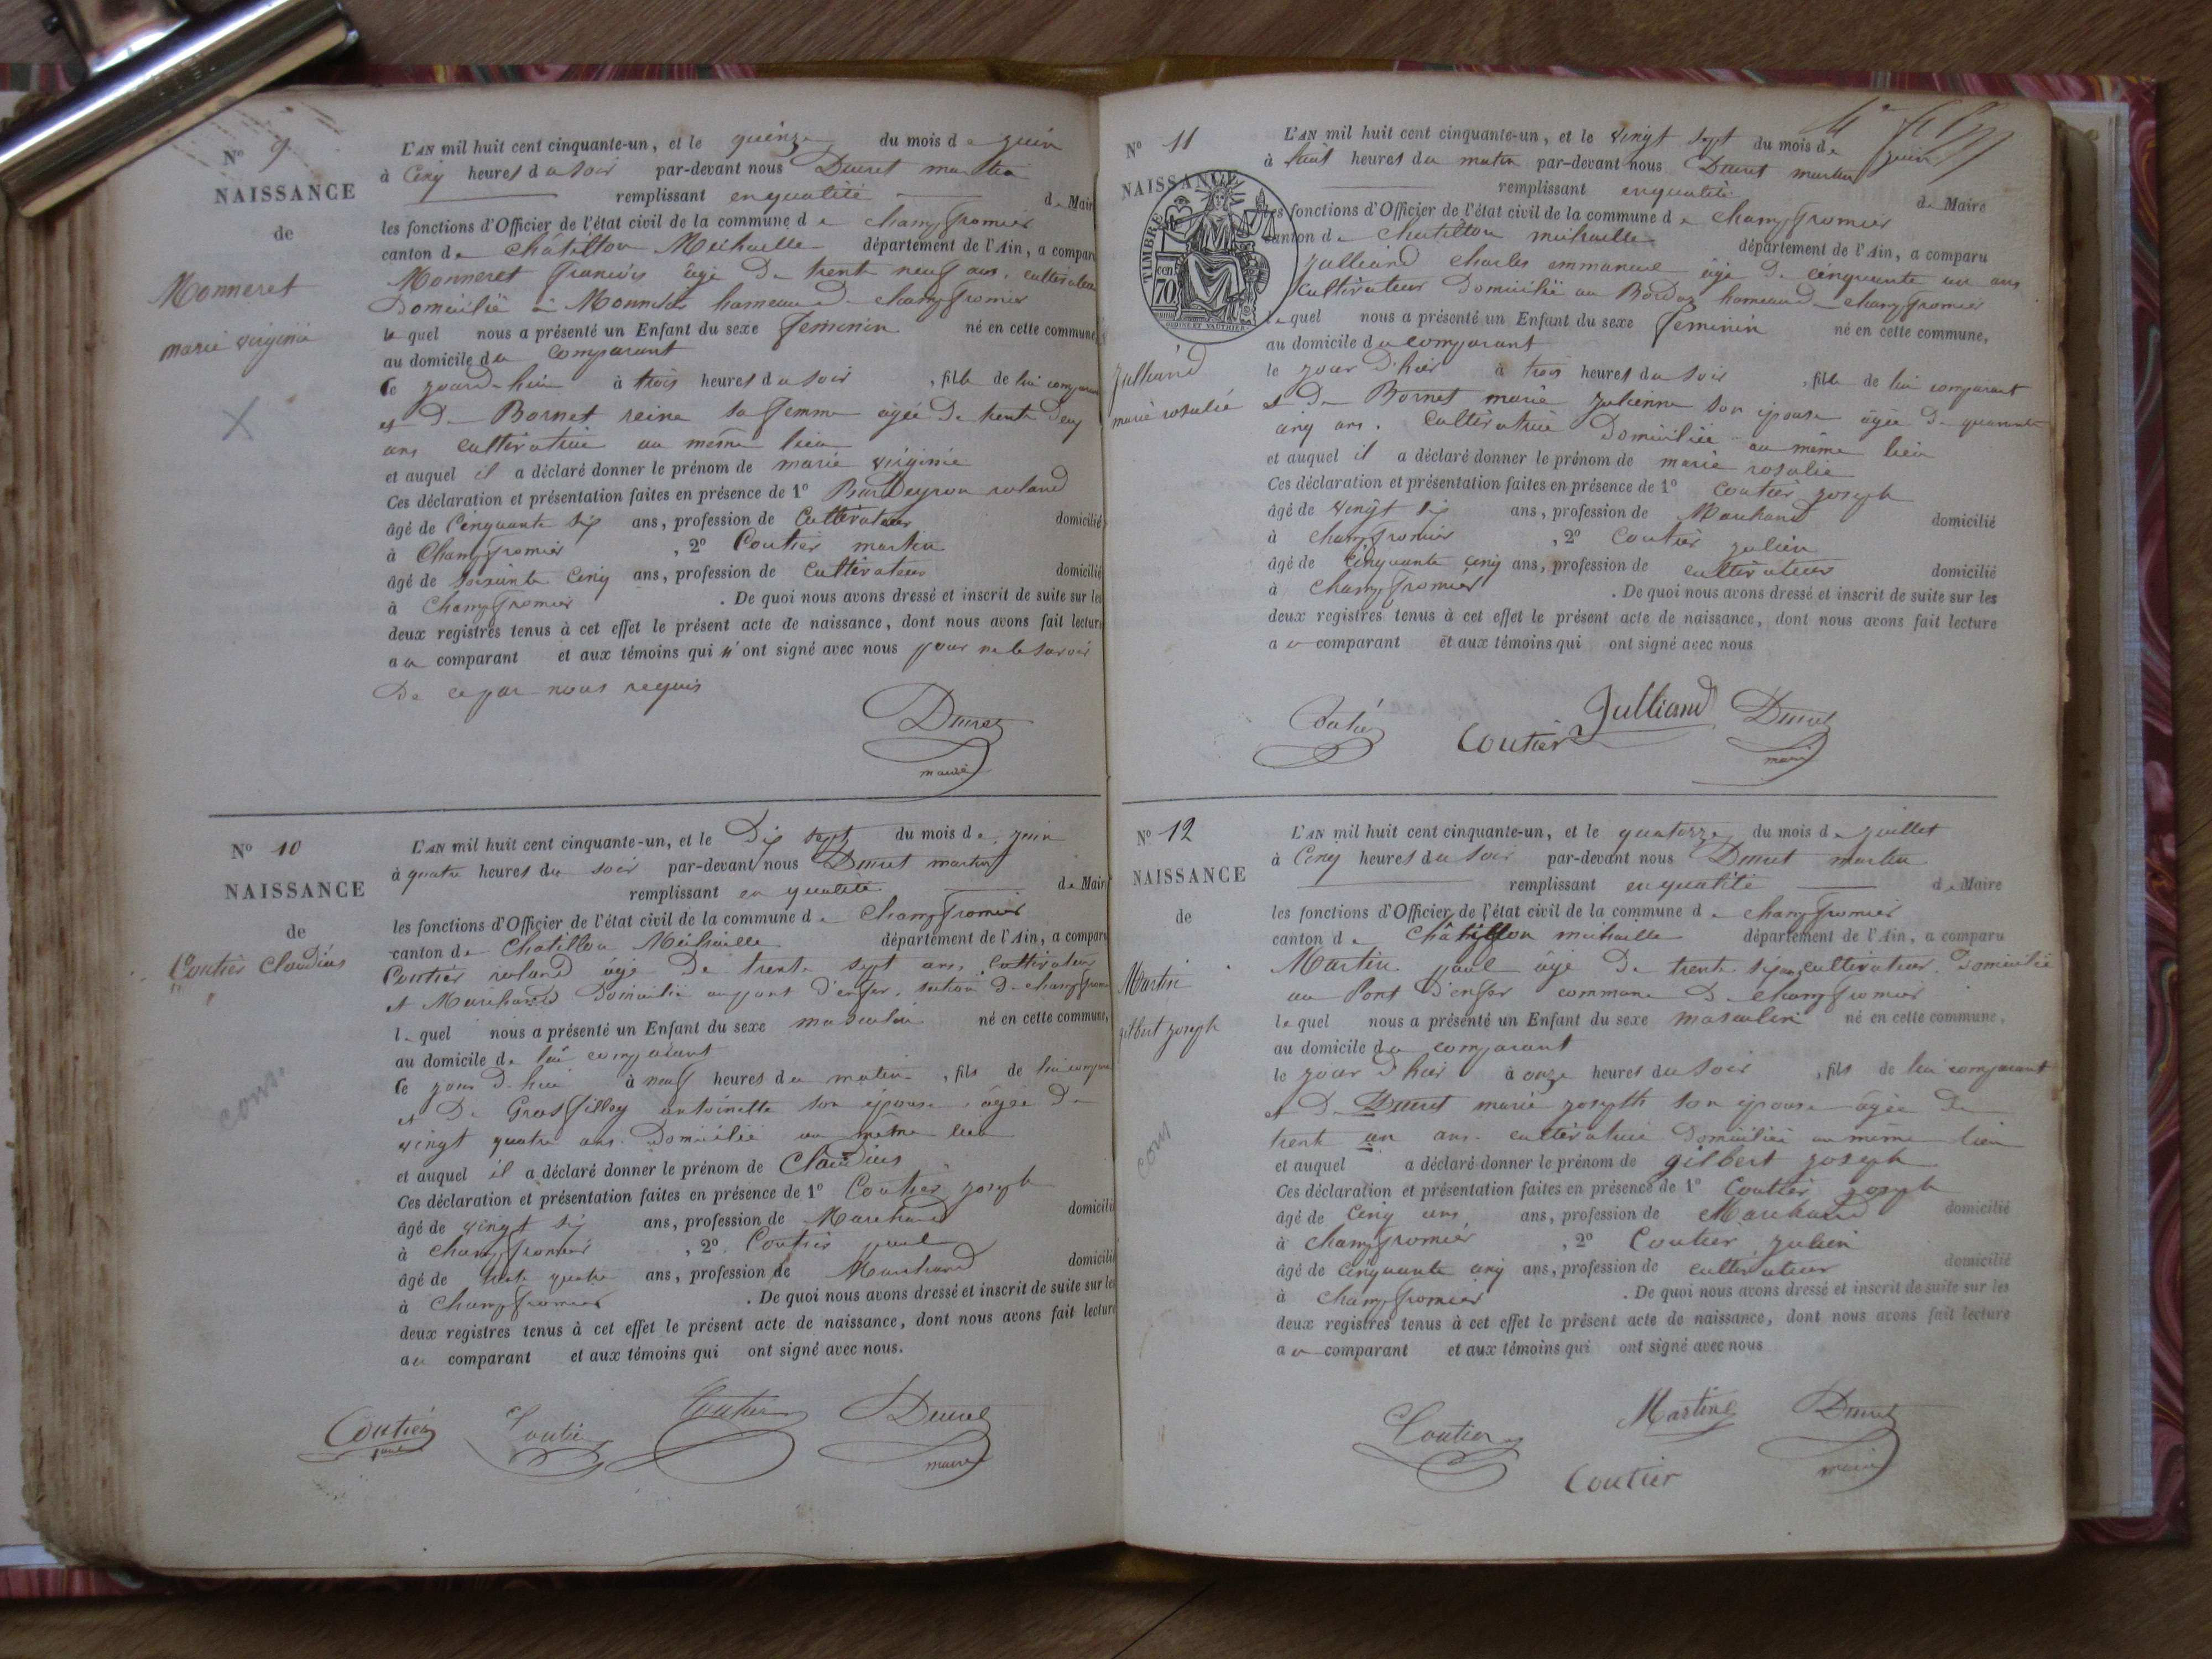 N° 9
NAISSANCE
de
Monneret
marie virginie
L'AN mil huit cent cinquante-un, et le quinze du mois de juin
à Cinq heures du soir par-devant nous Ducret martin
remplissant en qualité de Maire
les fonctions d'Officier de l'état civil de la commune de champfromier
canton de Châtillon Michaille département de l'Ain, a comparu
Monneret françois âgé De trente neuf ans, cultivateur
Domicilié à hameau de champfromier
le quel nous a présenté un Enfant du sexe feminin né en cette commune,
au domicile du comparant
Ce jourd-hui à trois heures du soir , fille de lui comparant
et De Bornet reine sa femme âgée De trente Deux
ans cultivatrice au même lieu
et auquel il a déclaré donner le prénom de marie virginie
Ces déclaration et présentation faites en présence de 1° roland
âgé de Cinquante six ans, profession de Cultivateur domicilié
à Champfromier , 2° Coutier martin
âgé de soixante Cinq ans, profession de Cultivateur domicilié
à Champfromier . De quoi nous avons dressé et inscrit de suite sur les
deux registres tenus à cet effet le présent acte de naissance, dont nous avons fait lecture
au comparant et aux témoins qui n'ont signé avec nous pour ne le savoir
De ce par nous requis
Ducret
maire
N° 10
NAISSANCE
de
Coutier Claudius
cons.
L'AN mil huit cent cinquante-un, et le Dix sept du mois de juin
à quatre heures du soir par-devant nous Ducret martin
remplissant en qualité de Maire
les fonctions d'Officier de l'état civil de la commune de Champfromier
canton de Chatillon Michaille département de l'Ain, a comparu
Coutier roland âgé De trente sept ans, Cultivateur
et Marchand Domicilié au pont d'enfer, section De champfromier
le quel nous a présenté un Enfant du sexe masculin né en cette commune,
au domicile de lui comparant
Ce jour d-hui à neuf heures du matin , fils de lui comparant
et De Grosfilley antoinette son epouse âgée De
vingt quatre ans Domicilié au même lieu
et auquel il a déclaré donner le prénom de Claudius
Ces déclaration et présentation faites en présence de 1° Coutier joseph
âgé de vingt six ans, profession de Marchand domicilié
à Champfromier , 2° Coutier paul
âgé de trente quatre ans, profession de Marchand domicilié
à Champfromier . De quoi nous avons dressé et inscrit de suite sur les
deux registres tenus à cet effet le présent acte de naissance, dont nous avons fait lecture
au comparant et aux témoins qui ont signé avec nous.
Coutier Coutier Coutier Ducret
paul maire
N° 11
NAISSANCE
TIMBRE
70 cen
OUDINE ET VAUTHIER
Julliand
marie rosalie
L'AN mil huit cent cinquante-un, et le vingt sept du mois de juin
à huit heures du matin par-devant nous Ducret martin
remplissant en qualité de Maire
les fonctions d'Officier de l'état civil de la commune de champfromier
canton de Chatillon michaille département de l'Ain, a comparu
Julliand Charles emmanuel âgé De cinquante un ans
Cultivateur Domicilié au hameau de champfromier
le quel nous a présenté un Enfant du sexe feminin né en cette commune,
au domicile du comparant
le jour D'hier à trois heures du soir , fille de lui comparant
et De Bornet marie julienne son epouse âgée De quarante
cinq ans. Cultivatrice Domiciliée au même lieu
et auquel il a déclaré donner le prénom de marie rosalie
Ces déclaration et présentation faites en présence de 1° Coutier joseph
âgé de vingt six ans, profession de Marchand domicilié
à champfromier , 2° Coutier julien
âgé de Cinquante cinq ans, profession de cultivateur domicilié
à champfromier . De quoi nous avons dressé et inscrit de suite sur les
deux registres tenus à cet effet le présent acte de naissance, dont nous avons fait lecture
au comparant et aux témoins qui ont signé avec nous
Coutier Coutier Julliand Ducret
maire
N° 12
NAISSANCE
de
Martin
gilbert joseph
cons
L'AN mil huit cent cinquante-un, et le quatorze du mois de juillet
à Cinq heures du soir par-devant nous Ducret martin
remplissant en qualité de Maire
les fonctions d'Officier de l'état civil de la commune de champfromier
canton de Châtillon michaille département de l'Ain, a comparu
Martin paul âgé De trente six ans cultivateur Domicilié
au Pont D'enfer commune De champfromier
le quel nous a présenté un Enfant du sexe masculin né en cette commune,
au domicile du comparant
le jour D'hier à onze heures du soir , fils de lui comparant
et De Ducret marie joseph son epouse âgée De
trente un ans. cultivatrice Domiciliée au même lieu
et auquel a déclaré donner le prénom de gilbert joseph
Ces déclaration et présentation faites en présence de 1° Coutier joseph
âgé de Cinq ans ans, profession de Marchand domicilié
à Champfromier , 2° Coutier julien
âgé de Cinquante cinq ans, profession de cultivateur domicilié
à Champfromier . De quoi nous avons dressé et inscrit de suite sur les
deux registres tenus à cet effet le présent acte de naissance, dont nous avons fait lecture
au comparant et aux témoins qui ont signé avec nous
Coutier Martin Ducret
Coutier maire